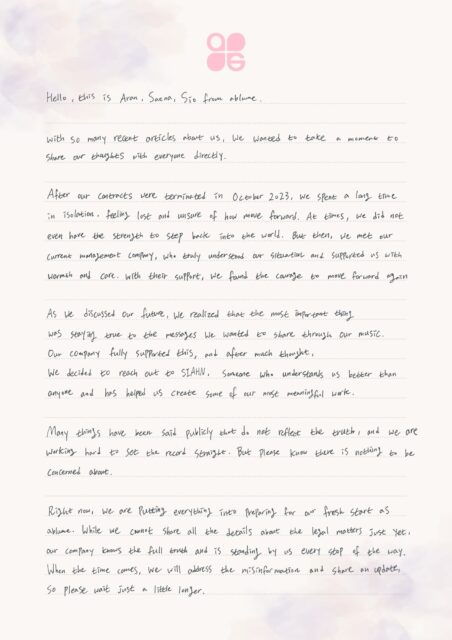 Hello, this is Aran, Saena, Sio from ablume.
With so many recent articles about us, we wanted to take a moment to
share our thoughts with everyone directly.
After our contracts were terminated in October 2023, we spent a long time
in isolation. feeling lost and unsure of how move forward. At times, we did not
even have the strength to step back into the world. But then, we met our
current management company, who truly understood our situation and supported us with
warmth and care. With their support, we found the courage to move forward again
As we discussed our future, we realized that the most important thing
was staying true to the messages we wanted to share through our music.
Our company fully supported this, and after much thought,
We decided to reach out to SIAHN, someone who understands us better than
anyone and has helped us create some of our most meaningful work.
Many things have been said publicly that do not reflect the truth, and we are
working hard to set the record straight. But please know there is nothing to be
concerned about.
Right now, we are putting everything into preparing for our fresh start as
ablume. While we cannot share all the details about the legal matters just yet,
our company knows the full truth and is standing by us every step of the way.
When the time comes, we will address the misinformation and share an update,
so please wait just a little longer.